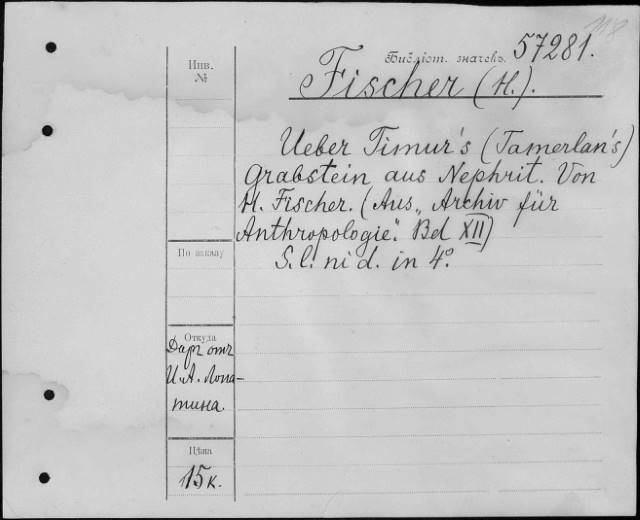 118
Библіот. значекъ 57281.
Fischer (H.).
Инв.
№
Ueber Timur's (Tamerlan's)
Grabstein aus Nephrit. Von
H. Fischer. (Aus „Archiv für
Anthropologie". Bd XII)
S. l. ni d. in 4°.
По заказу
Откуда
Даръ отъ
И. А. Лопа-
тина.
Цѣна
15 к.